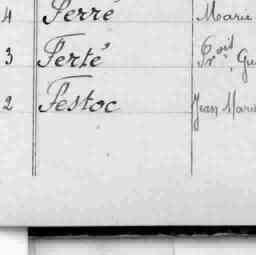 4 Ferré Marie
3 Ferté
2 Festoc Jean Marie